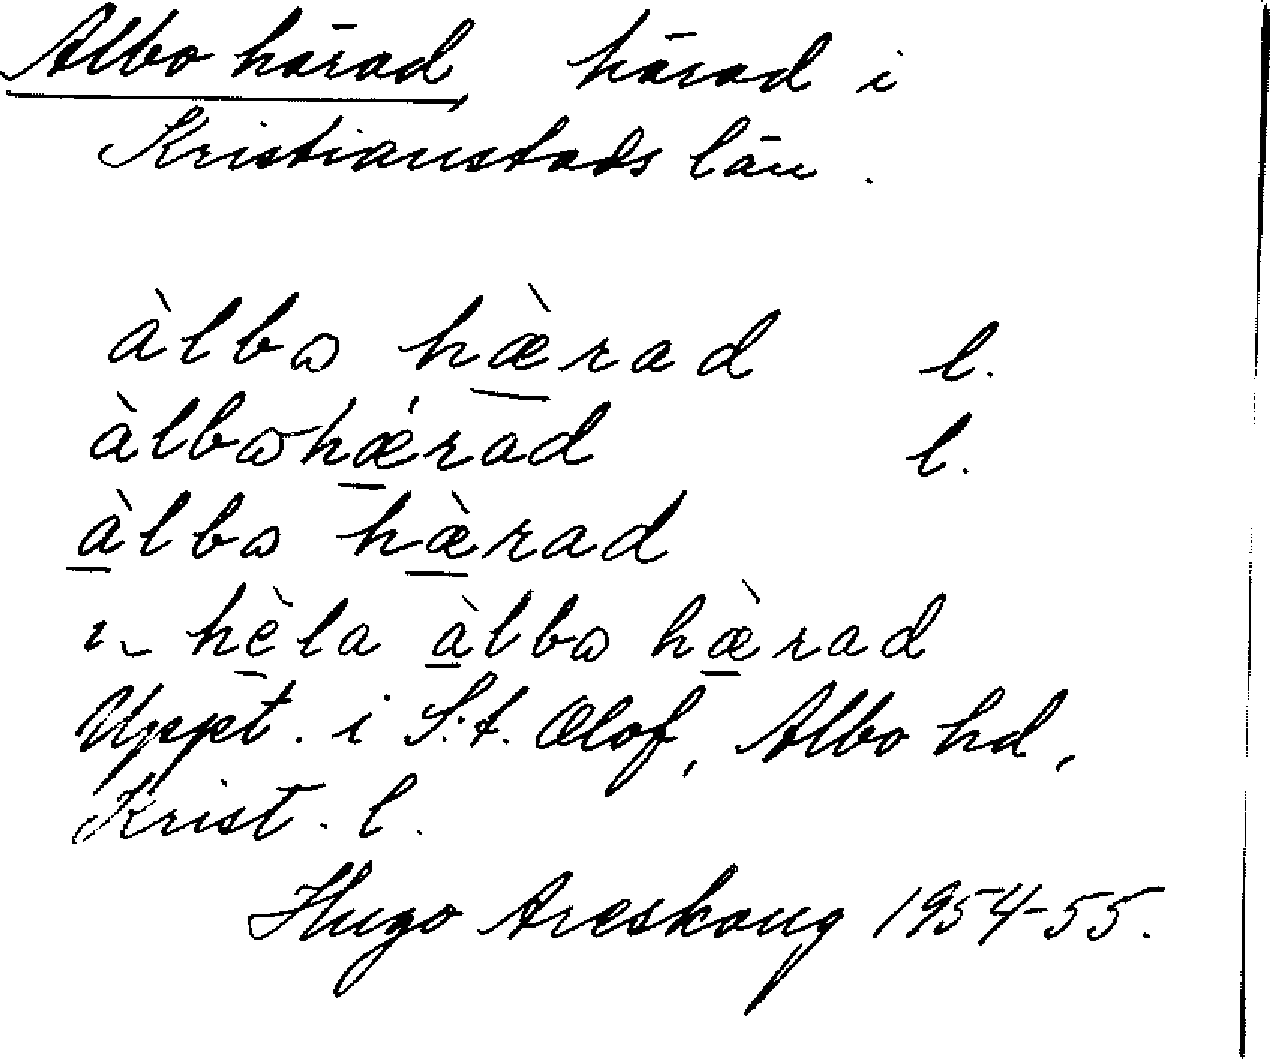 Albo härad, härad i
Kristianstads län.
àlbω hæ̀rad l.
àlbωhǽrad l.
àlbω hæ̀rad
i hèla àlbω hæ̀rad
Uppt. i S:t. Olof, Albo hd,
Krist. l.
Hugo Areskoug 1954-55.